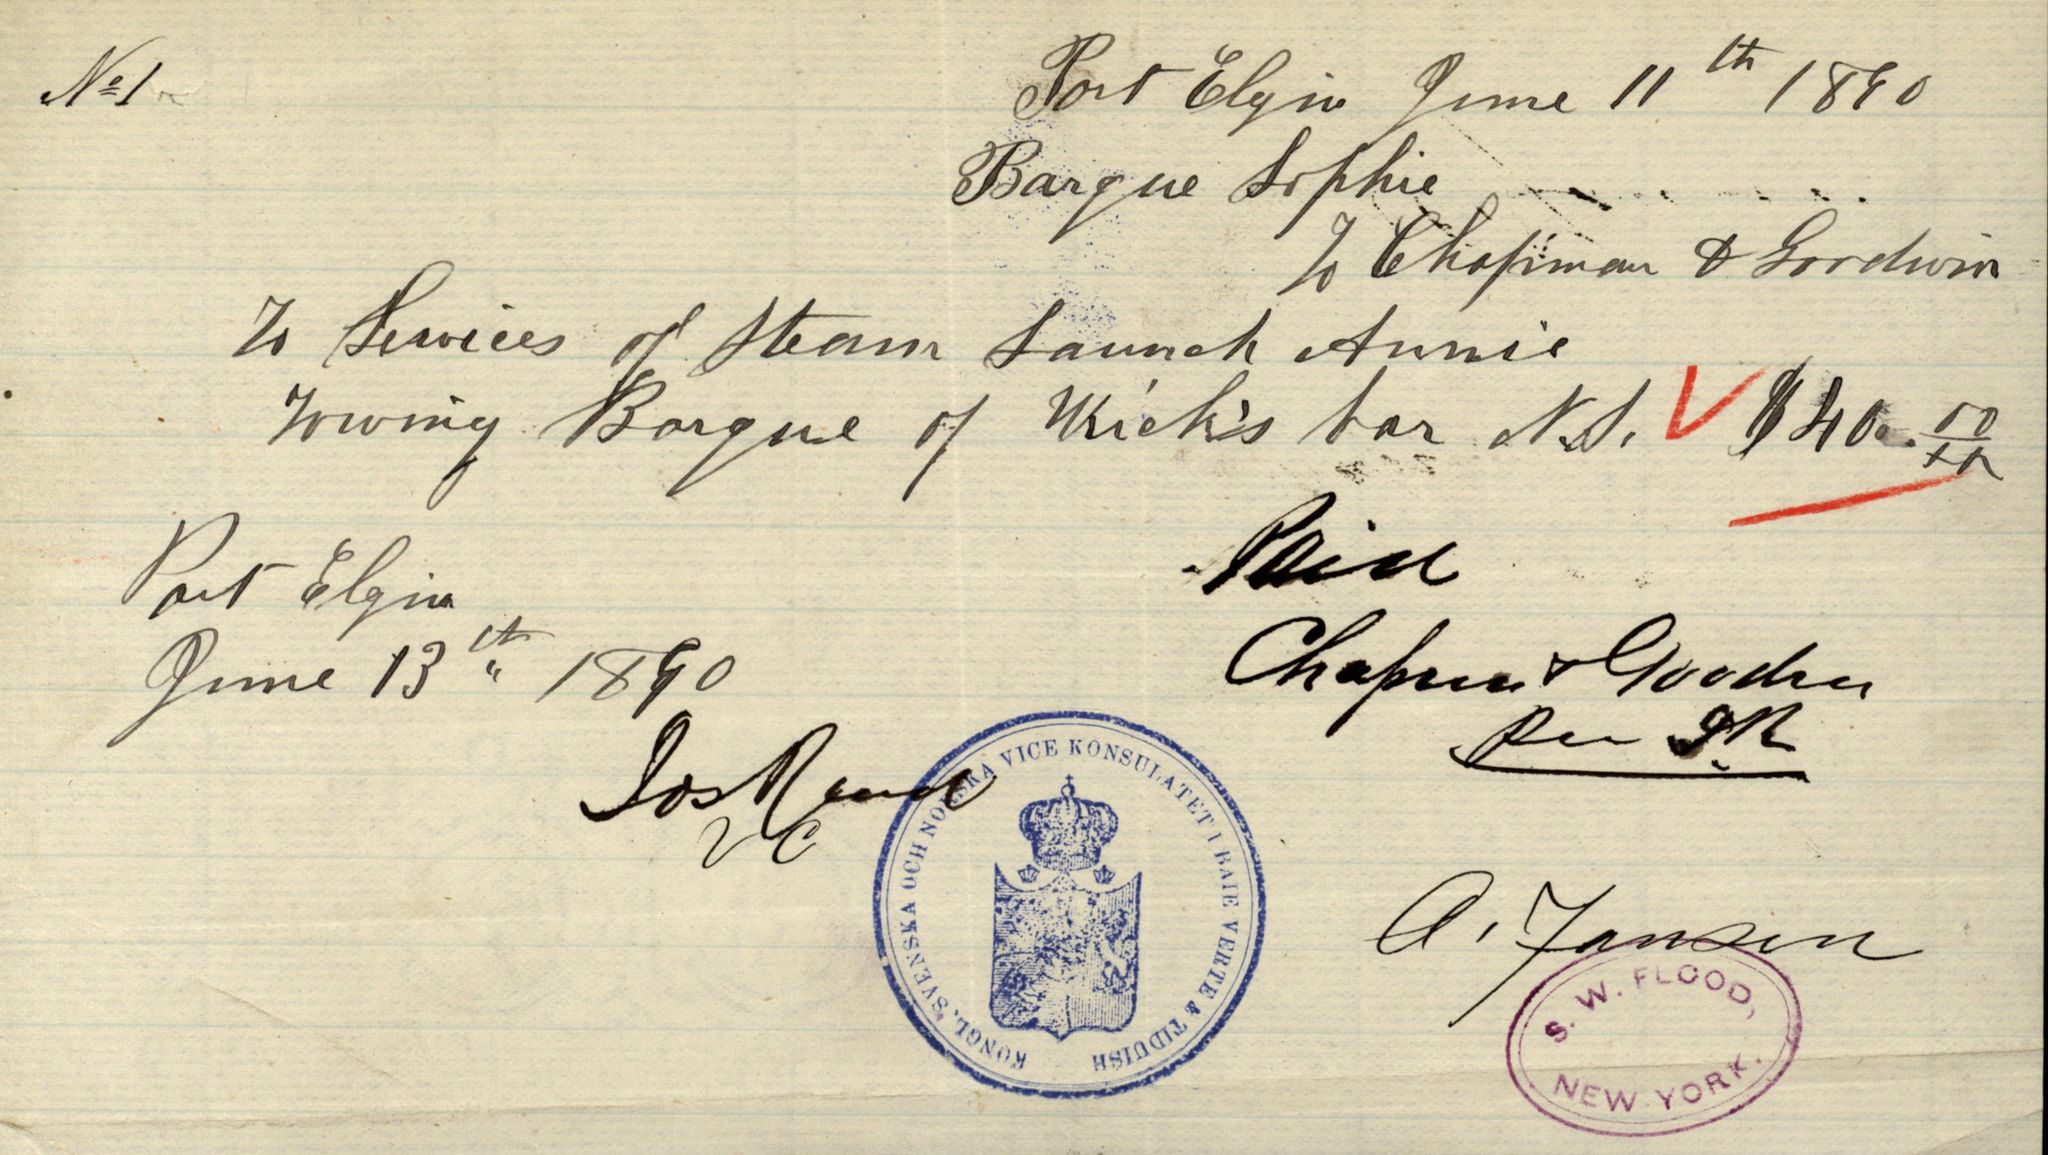 No 1
Port Elgin June 11th 1890
Barque Sophie
To Chapman & Goodwin
To Services of Steam Launch Annie
Towing Barque of Kiek's bar N.S. $40.00/xx
Paid
Chapman & Goodwin
Per
Port Elgin
June 13th 1890
Jos Read
VC
KONGL. SVENSKA OCH NORSKA VICE KONSULATET I BAIE VERTE & TIDUISH
A. Jansen
S. W. FLOOD,
NEW YORK.